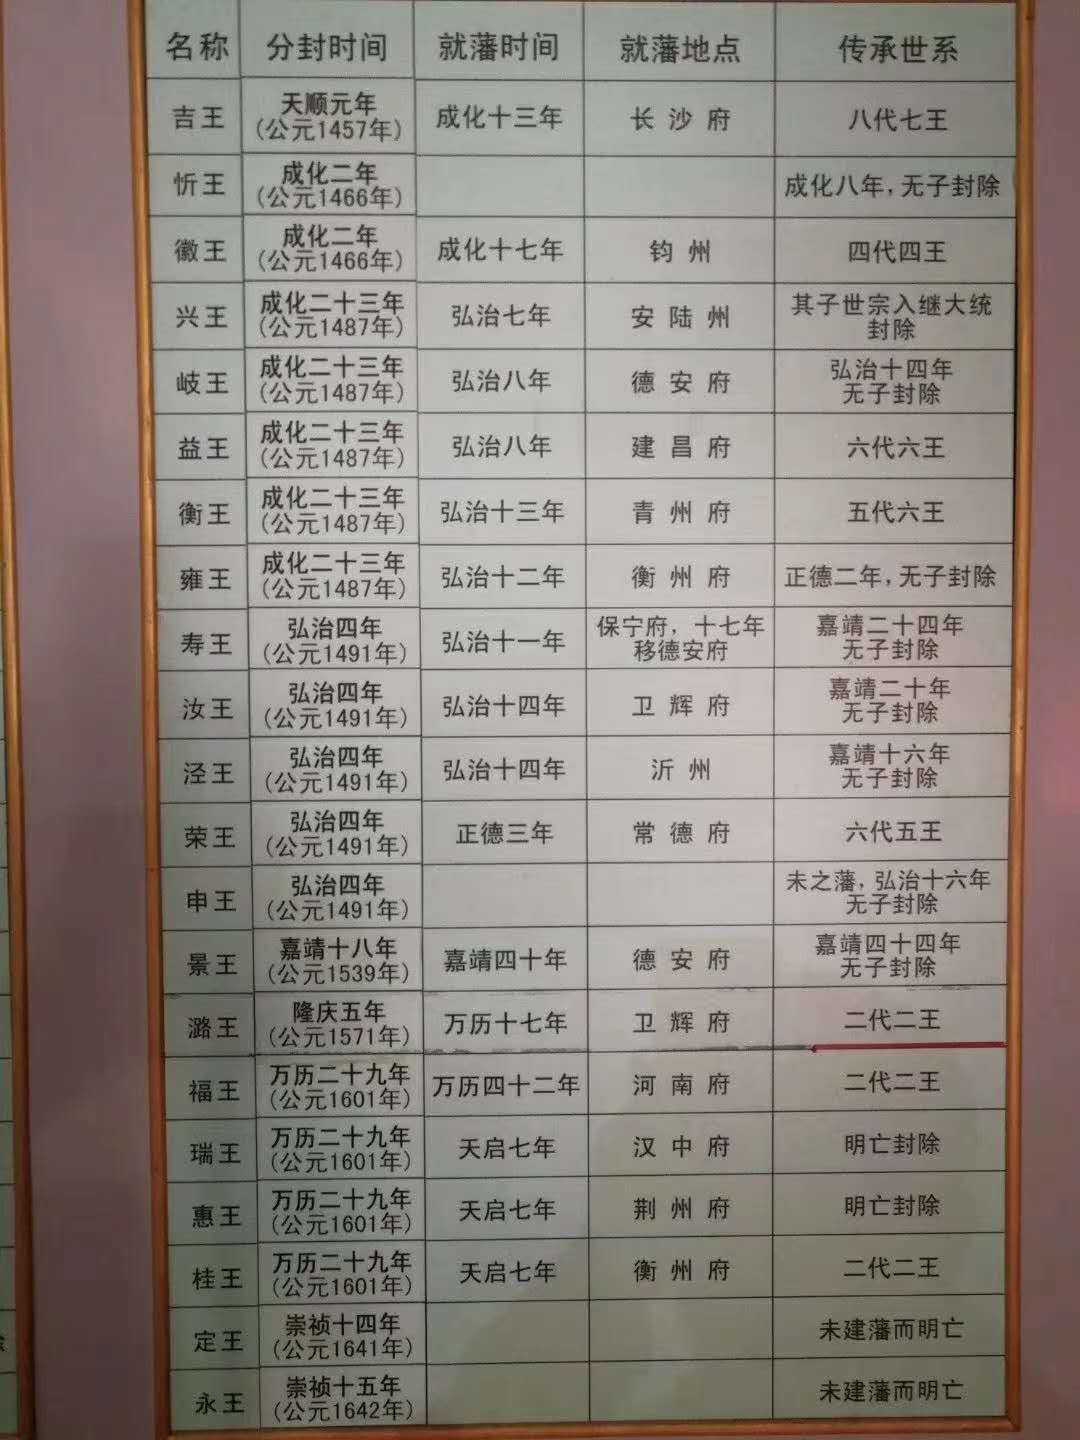 名称 分封时间 就藩时间 就藩地点 传承世系
吉王 天顺元年 (公元1457年) 成化十三年 长沙府 八代七王
忻王 成化二年 (公元1466年) 成化八年，无子封除
徽王 成化二年 (公元1466年) 成化十七年 钧州 四代四王
兴王 成化二十三年 (公元1487年) 弘治七年 安陆州 其子世宗入继大统 封除
岐王 成化二十三年 (公元1487年) 弘治八年 德安府 弘治十四年 无子封除
益王 成化二十三年 (公元1487年) 弘治八年 建昌府 六代六王
衡王 成化二十三年 (公元1487年) 弘治十三年 青州府 五代六王
雍王 成化二十三年 (公元1487年) 弘治十二年 衡州府 正德二年，无子封除
寿王 弘治四年 (公元1491年) 弘治十一年 保宁府，十七年 移德安府 嘉靖二十四年 无子封除
汝王 弘治四年 (公元1491年) 弘治十四年 卫辉府 嘉靖二十年 无子封除
泾王 弘治四年 (公元1491年) 弘治十四年 沂州 嘉靖十六年 无子封除
荣王 弘治四年 (公元1491年) 正德三年 常德府 六代五王
申王 弘治四年 (公元1491年) 未之藩，弘治十六年 无子封除
景王 嘉靖十八年 (公元1539年) 嘉靖四十年 德安府 嘉靖四十四年 无子封除
潞王 隆庆五年 (公元1571年) 万历十七年 卫辉府 二代二王
福王 万历二十九年 (公元1601年) 万历四十二年 河南府 二代二王
瑞王 万历二十九年 (公元1601年) 天启七年 汉中府 明亡封除
惠王 万历二十九年 (公元1601年) 天启七年 荆州府 明亡封除
桂王 万历二十九年 (公元1601年) 天启七年 衡州府 二代二王
定王 崇祯十四年 (公元1641年) 未建藩而明亡
永王 崇祯十五年 (公元1642年) 未建藩而明亡